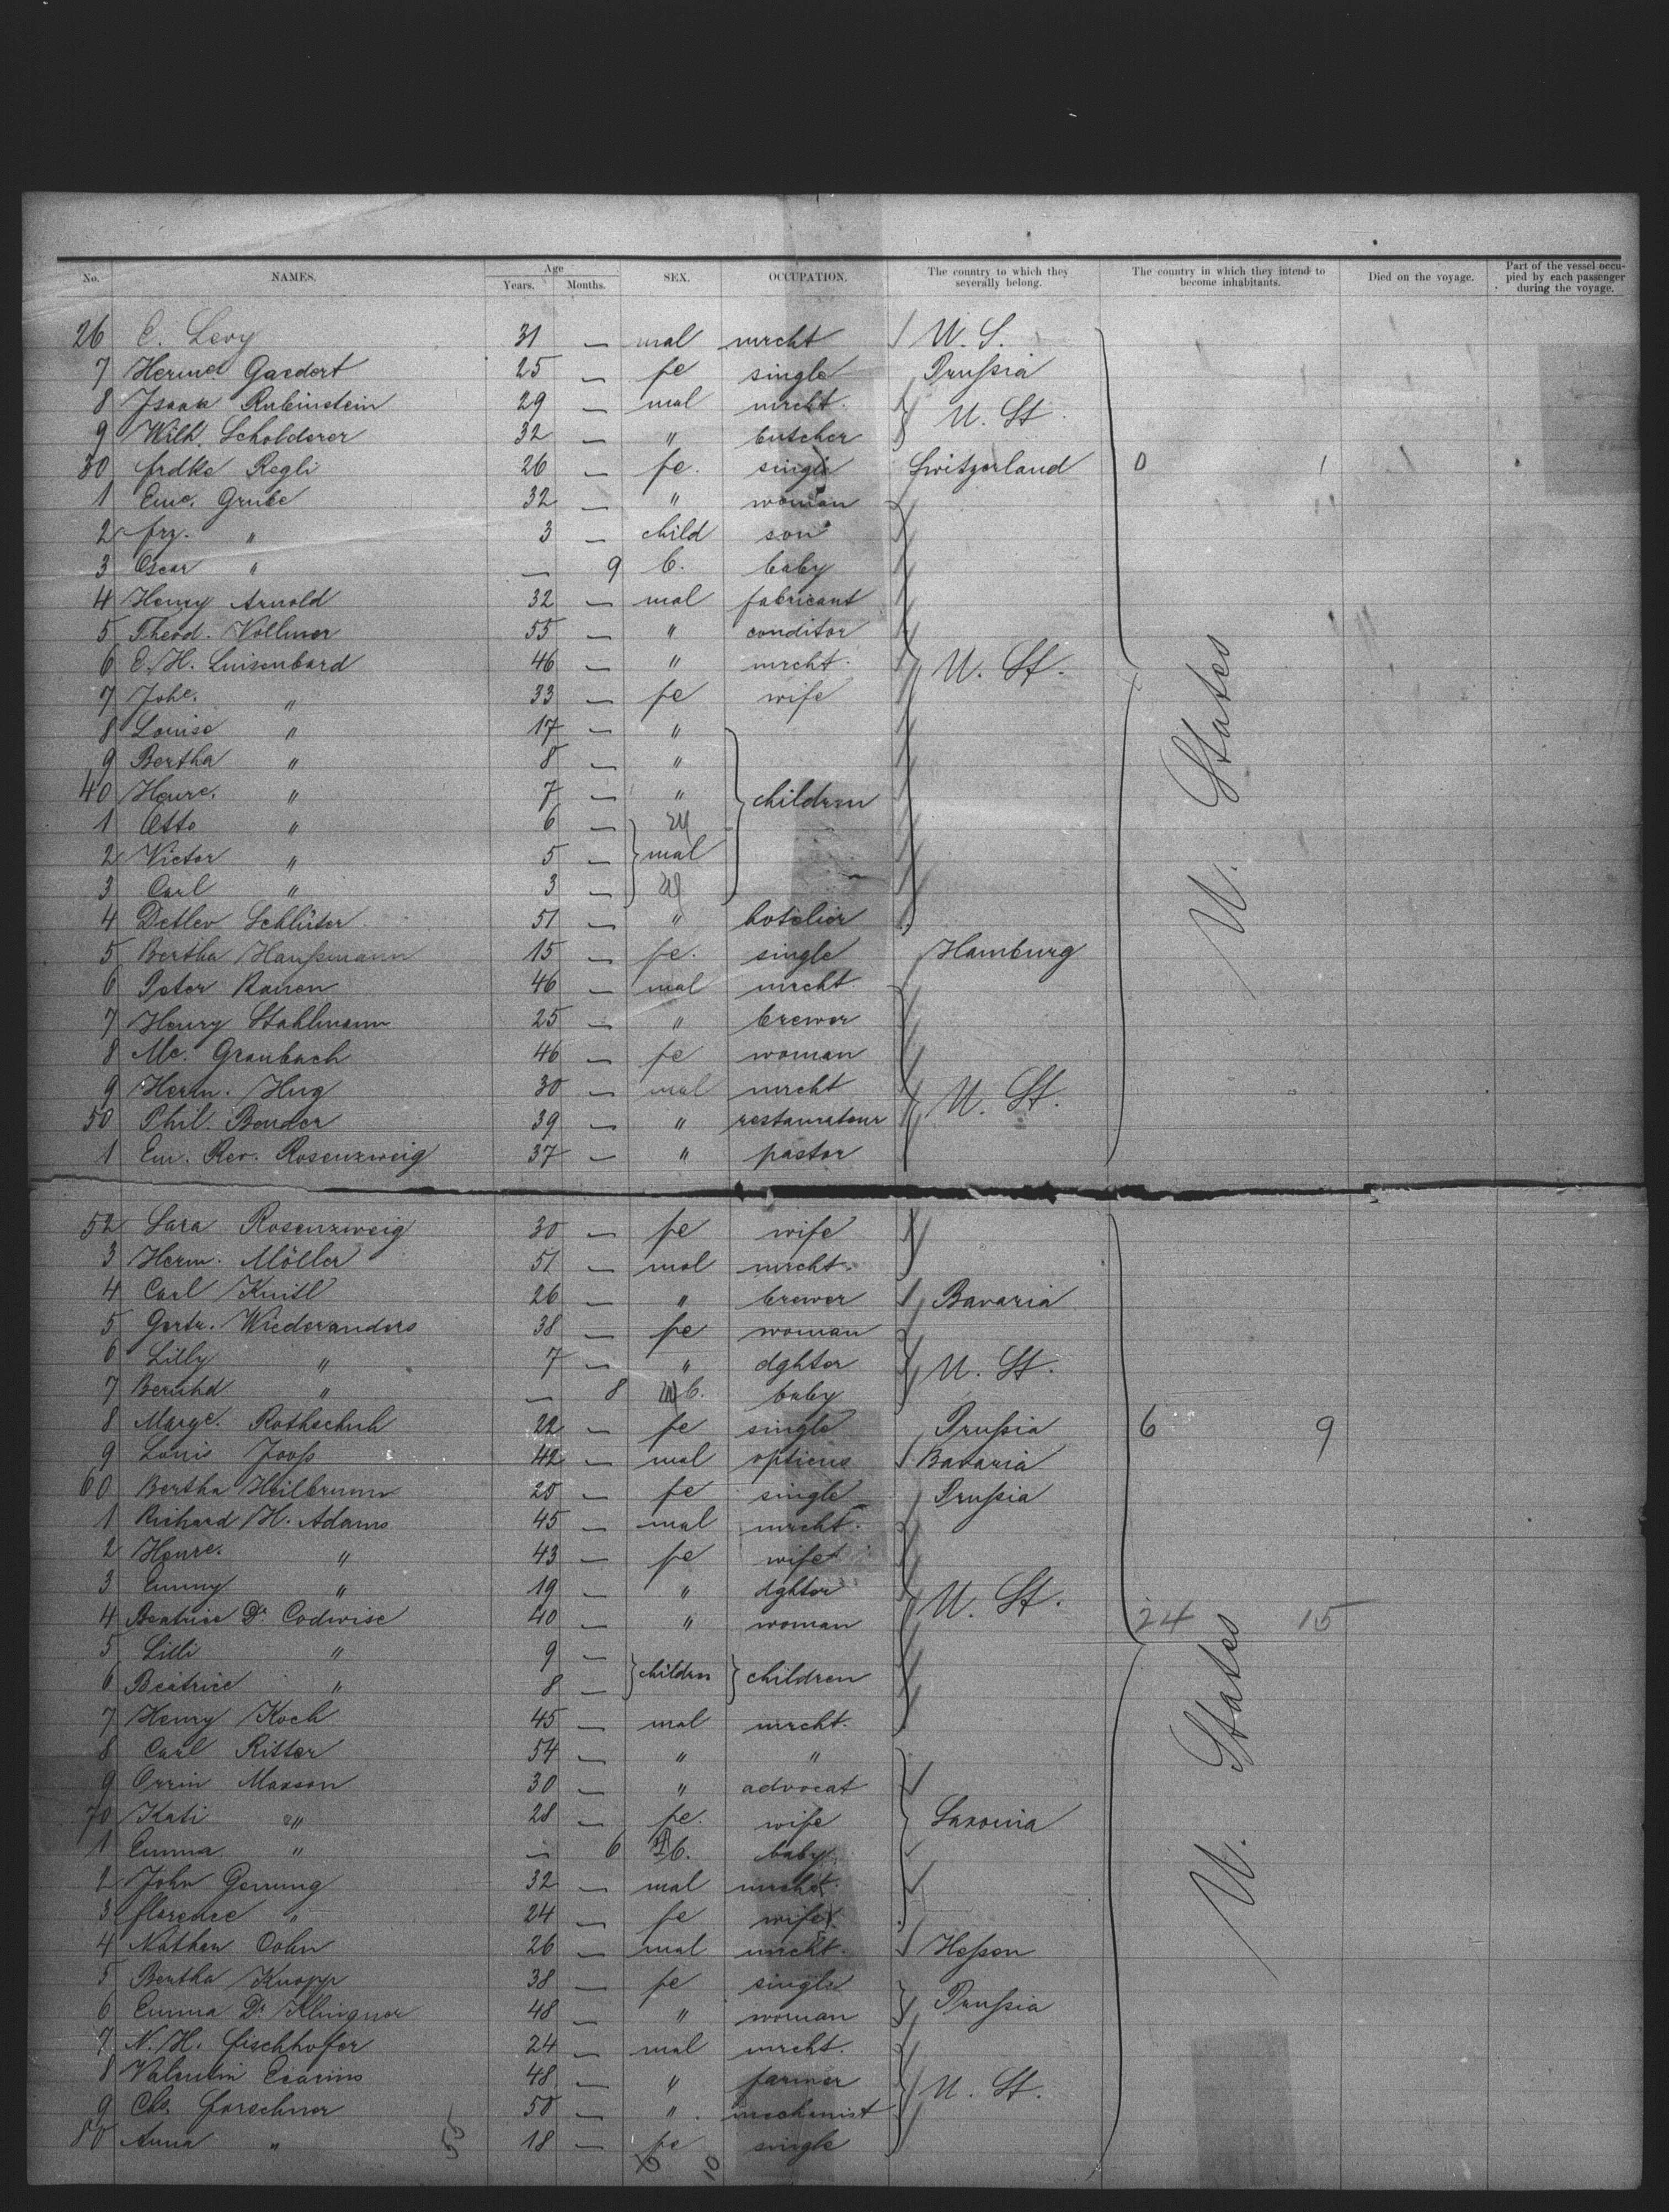 No. NAMES. Age Years. Months. SEX. OCCUPATION. The country to which they severally belong. The country in which they intend to become inhabitants. Died on the voyage. Part of the vessel occupied by each passenger during the voyage.
26 C. Levy 31 — mal mrcht U. S.
7 Hermе. Gaedert 25 — fe single Prußia
8 Isaak Rubinstein 29 — mal mrcht. U. St.
9 Wilh. Scholderer 32 — " butcher
30 frdke Regli 26 — fe. single Switzerland 0 1
1 Eme. Grube 32 — " woman
2 frz. " 3 — child son
3 Oscar " — 9 b. baby
4 Henry Arnold 32 — mal fabricant
5 Theod. Vollmer 55 — " conditor
6 C. H. Luisenbard 46 — " mrcht. U. St.
7 Johe. " 33 — fe wife
8 Louise " 17 — "
9 Bertha " 8 — "
40 Henre. " 7 — " children
1 Otto " 6 —
2 Victor " 5 — mal
3 Carl " 3 —
4 Detlev Schlüter 51 — " hotelier
5 Bertha Haußmann 15 — fe. single Hamburg
6 Peter 46 — mal mrcht
7 Henry Stahlmann 25 — " brewer
8 Me. Graubach 46 — fe woman
9 Herm. Hug 30 — mal mrcht U. St.
50 Phil. Bender 39 — " restaurateur
1 Em. Rev. Rosenzweig 37 — " pastor
U. States
52 Sara Rosenzweig 30 — fe wife
3 Herm. Möller 51 — mal mrcht.
4 Carl Knitl 26 — " brewer Bavaria
5 Gertr. Wiederanders 38 — fe woman
6 Lilly " 7 — " dghter U. St.
7 Bernhd " — 8 b. baby
8 Marge. Rothschuh 22 — fe single Prußia 6 9
9 Louis Jooß 42 — mal opticus Bavaria
60 Bertha Heilbrunn 20 — fe single Prußia
1 Richard H. Adams 45 — mal mrcht.
2 Henre. " 43 — fe wife
3 Emmy " 19 — " dghter U. St.
4 Beatrice Dr. Codwise 40 — " woman 24 15
5 Lilli " 9 —
6 Beatrice " 8 — children children
7 Henry Koch 45 — mal mrcht.
8 Carl Ritter 54 — " "
9 Orrin Maxson 30 — " advocat
70 Kati " 28 — fe. wife Saxonia
1 Emma " — 6 b. baby
2 John Genung 32 — mal mrcht.
3 florence " 24 — fe wife
4 Nathan Cohn 26 — mal mrcht. Heßen
5 Bertha Knopp 38 — fe single
6 Emma Dr. Klingner 48 — " woman Prußia
7 N. H. fischhofer 24 — mal mrcht.
8 Valentin 48 — " farmer U. St.
9 Chs. forschner 50 — " mechanist
80 Anna " 18 — fe single
U. States
55 10